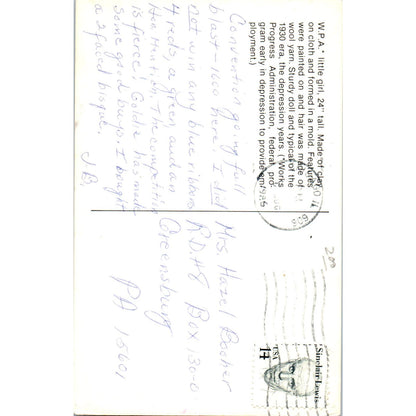 W.P.A." little girl, 24" tall. Made of clay
on cloth and formed in a mold. Features
were painted on and hair was made of
wool yarn. Sturdy doll and typical of the
1930 era, the depression years. ("Works
Progress Administration, federal pro-
gram early in depression to provide em-
ployment.)
Convention going full
blast - 1600 here! I did
not win any blue ribbons
4 reds, a green and an
Hon Mention. The competition
is fierce! Goldie has made
some good buys. I bought
a 2 faced bisque.
J.B.
Mrs. Hazel Booher
R.D.#8 Box 130-C
Greensburg
PA 15601
200
Sinclair Lewis
USA
14